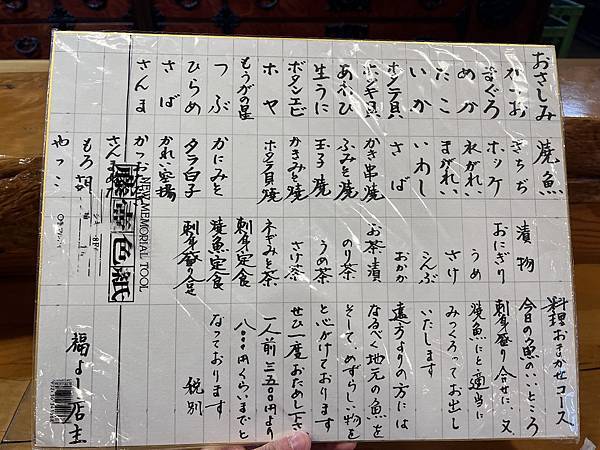 おさしみ
かつお
まぐろ
めか
たこ
いか
ホタテ貝
ホッキ貝
あわび
生うに
ボタンエビ
ホヤ
もうかの星
つぶ
ひらめ
さば
さんま
焼魚
きちぢ
ホッケ
氷がれい
まがれい
いわし
さば
かき串焼
ふみそ焼
玉子焼
かきみそ焼
ホタテ貝焼
かにみそ
タラ白子
かれい空揚
かつお
さん
もろ胡
やっこ
漬物
おにぎり
うめ
さけ
こんぶ
おかか
お茶漬
のり茶
うめ茶
さけ茶
ネギみそ茶
刺身定食
焼魚定食
刺身盛り
料理おまかせコース
今日の魚のいいところ
刺身盛り合せに、又
焼魚にと適当に
みつくろってお出し
いたします
遠方よりの方には
なるべく地元の魚を
そして、めずらしい物を
と心がけております
ぜひ一度おためし下さい
一人前 三五〇〇円より
八〇〇〇円くらいまでと
なっております
税別
福よし店主
NEW MEMORIAL TOOL
色紙